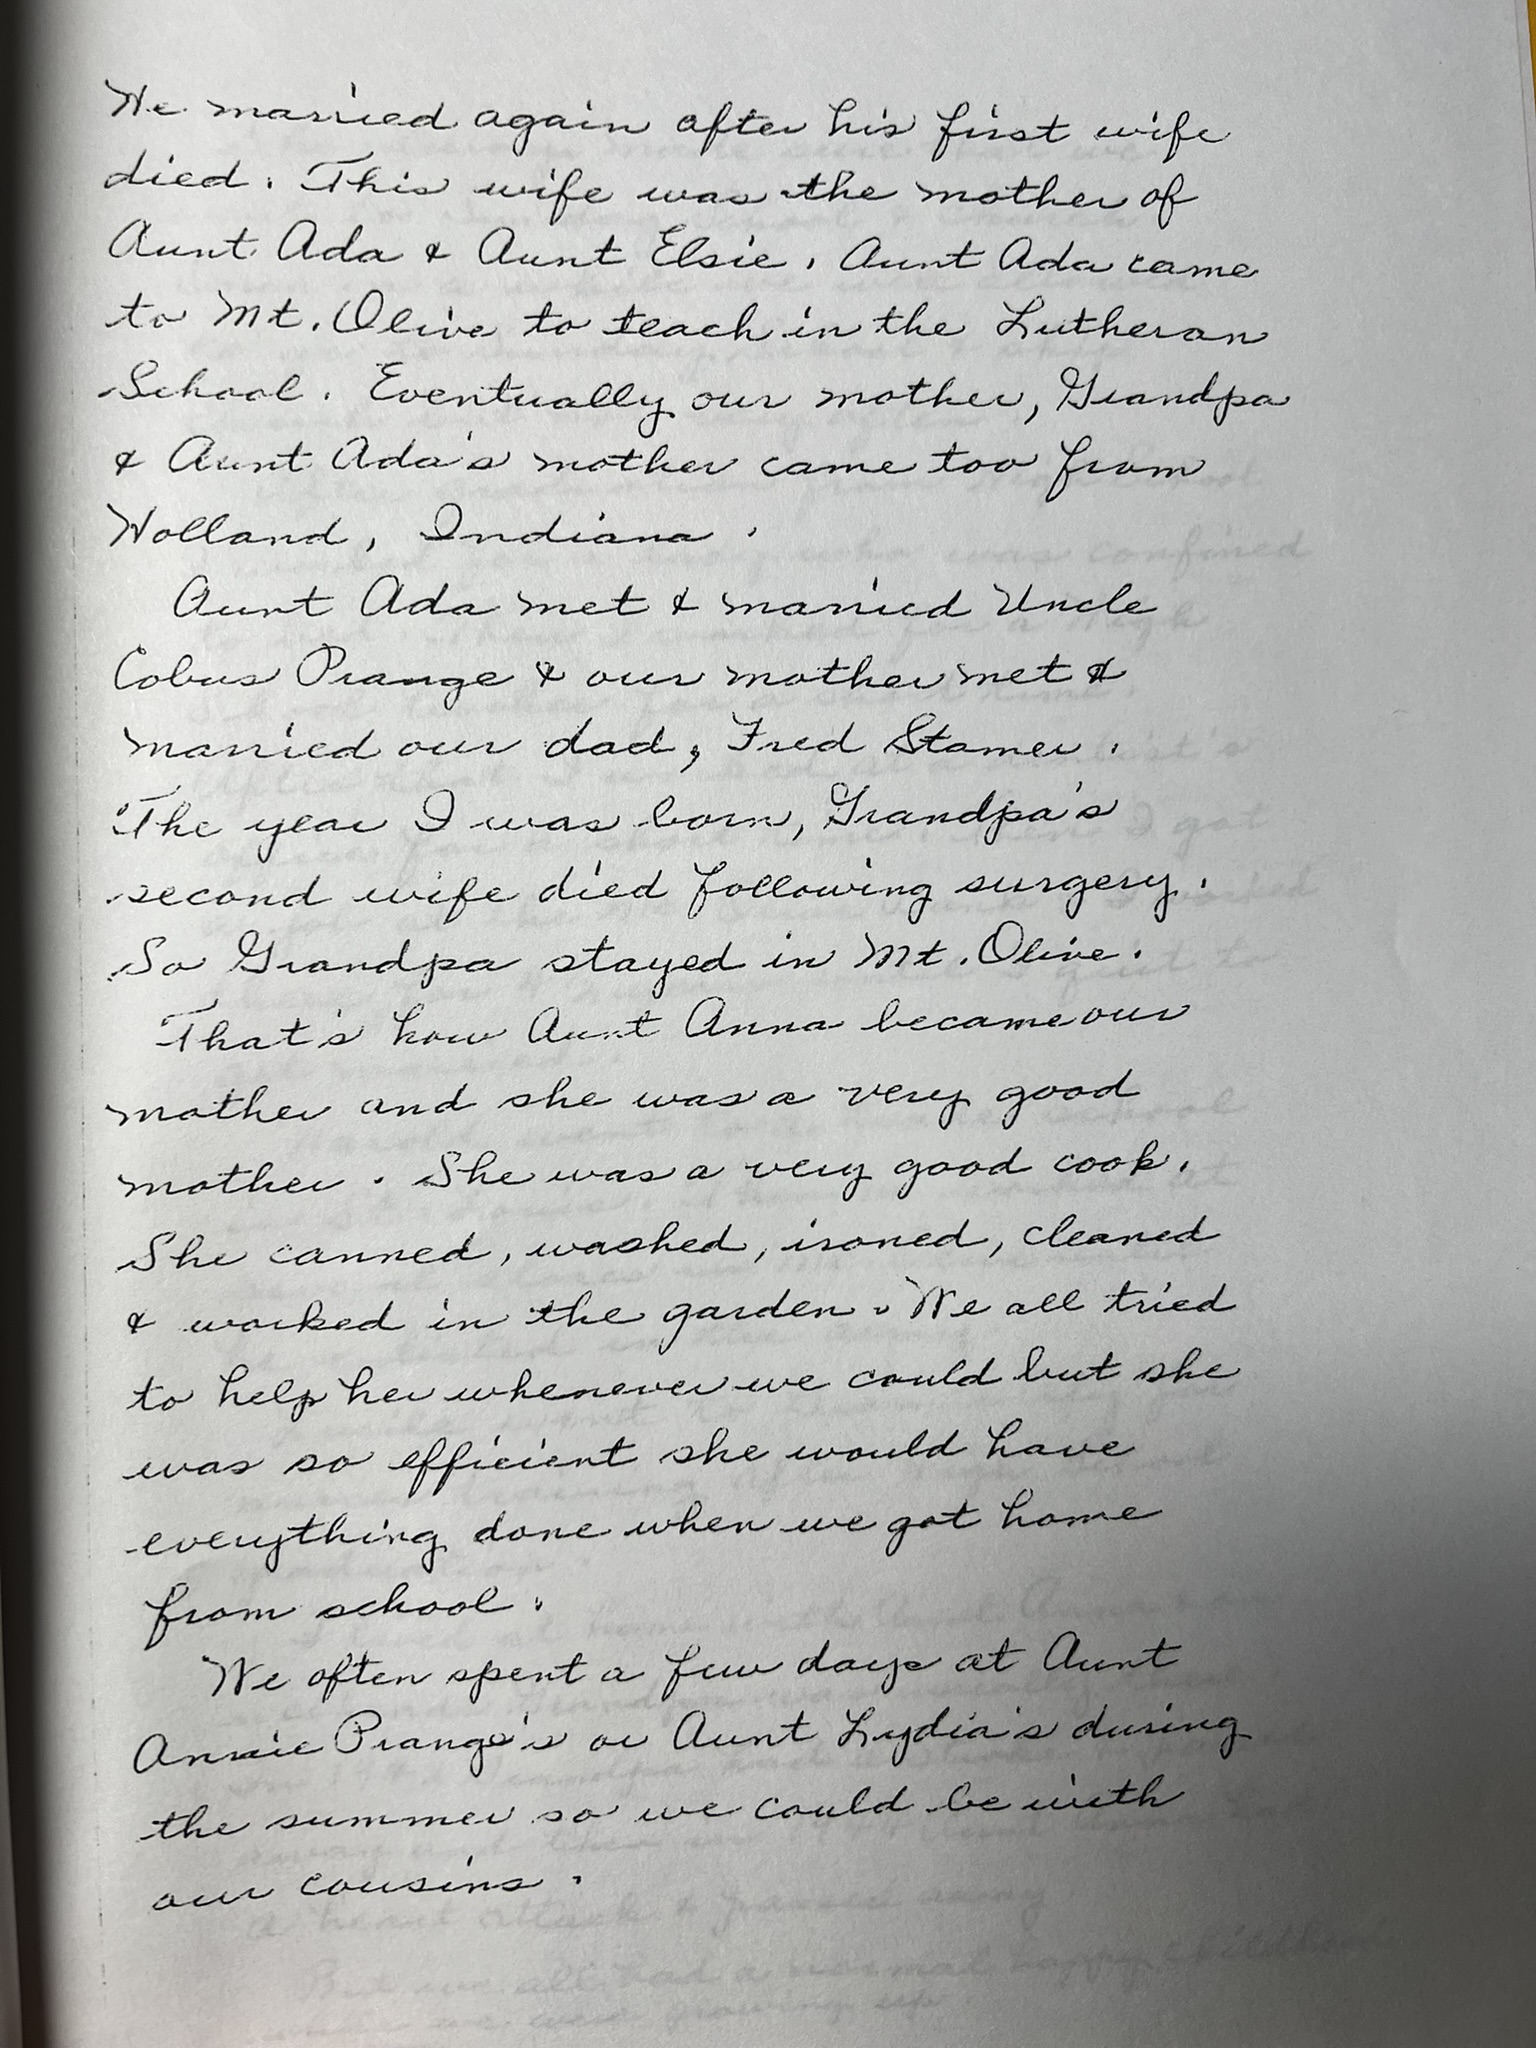 He married again after his first wife
died. This wife was the mother of
Aunt Ada & Aunt Elsie. Aunt Ada came
to Mt. Olive to teach in the Lutheran
School. Eventually our mother, Grandpa
& Aunt Ada's mother came too from
Holland, Indiana.
Aunt Ada met & married Uncle
Cobus Prange & our mother met &
married our dad, Fred Stamer.
The year I was born, Grandpa's
second wife died following surgery.
So Grandpa stayed in Mt. Olive.
That's how Aunt Anna became our
mother and she was a very good
mother. She was a very good cook.
She canned, washed, ironed, cleaned
& worked in the garden. We all tried
to help her whenever we could but she
was so efficient she would have
everything done when we got home
from school.
We often spent a few days at Aunt
Annie Prange's or Aunt Lydia's during
the summer so we could be with
our cousins.